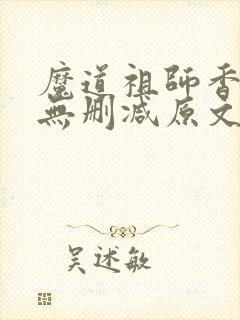 魔道祖師香
無删减原文
吴述敏